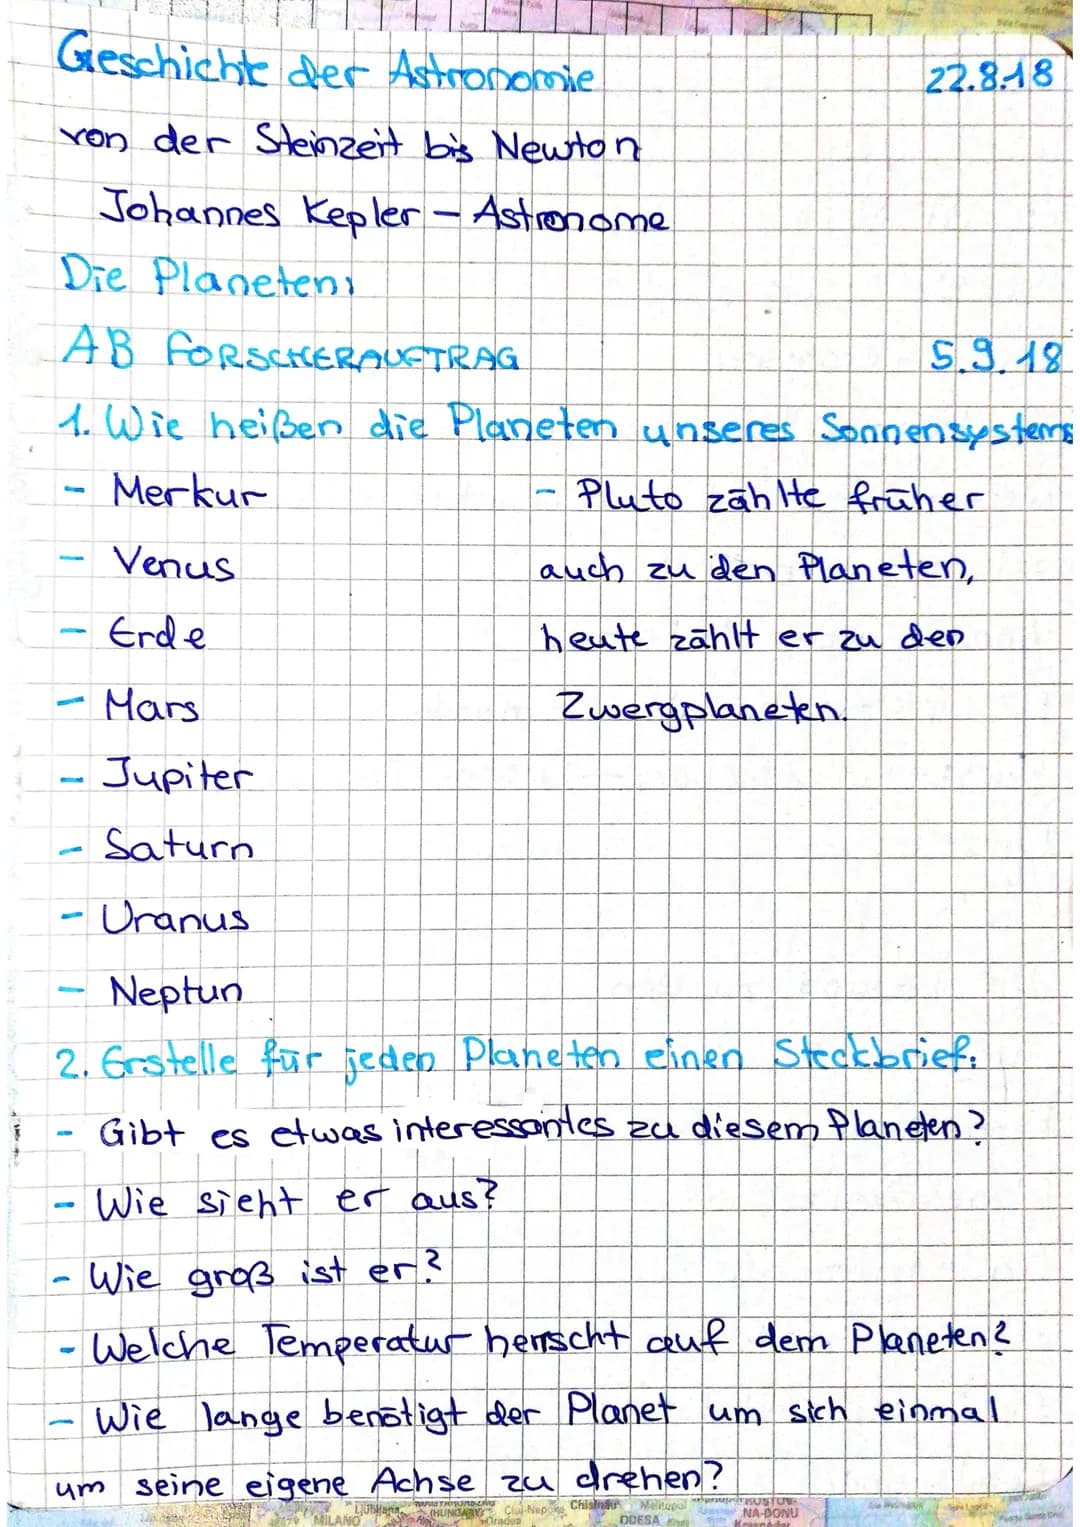 Geschichte der Astronomie 22.8.18
von der Steinzeit bis Newton
Johannes Kepler – Astronome
Die Planeten:
AB FORSCHERAUFTRAG 5.9.18
1. Wie heißen die Planeten unseres Sonnensystems
- Merkur - Pluto zählte früher
- Venus auch zu den Planeten,
- Erde heute zählt er zu den
- Mars Zwergplaneten.
- Jupiter
- Saturn
- Uranus
- Neptun
2. Erstelle für jeden Planeten einen Steckbrief:
- Gibt es etwas interessantes zu diesem Planeten?
- Wie sieht er aus?
- Wie groß ist er?
- Welche Temperatur herrscht auf dem Planeten?
- Wie lange benötigt der Planet um sich einmal
um seine eigene Achse zu drehen?
Ljubljana (HUNGARY) Chisinau Melitopol
MILANO Oradea NA-DONU